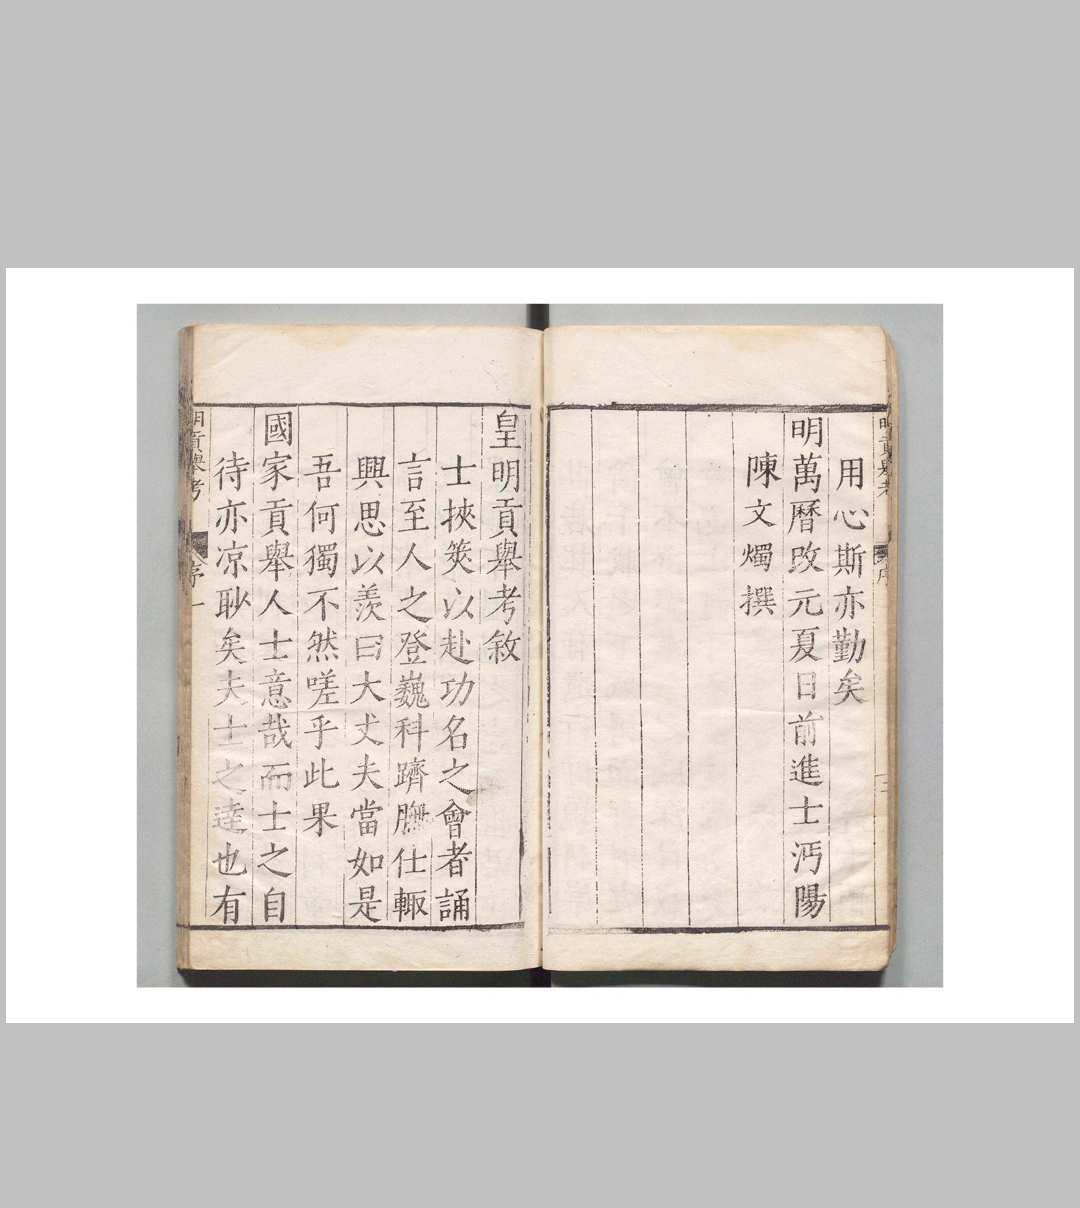 用心斯亦勤矣
明萬曆改元夏日前進士沔陽
陳文燭撰
皇明貢舉考敘
士挾筴以赴功名之會者誦
言至人之登巍科躋膴仕輒
興思以羨曰大丈夫當如是
吾何獨不然嗟乎此果
國家貢舉人士意哉而士之自
待亦凉眇矣夫士之達也有
明貢舉考
序一